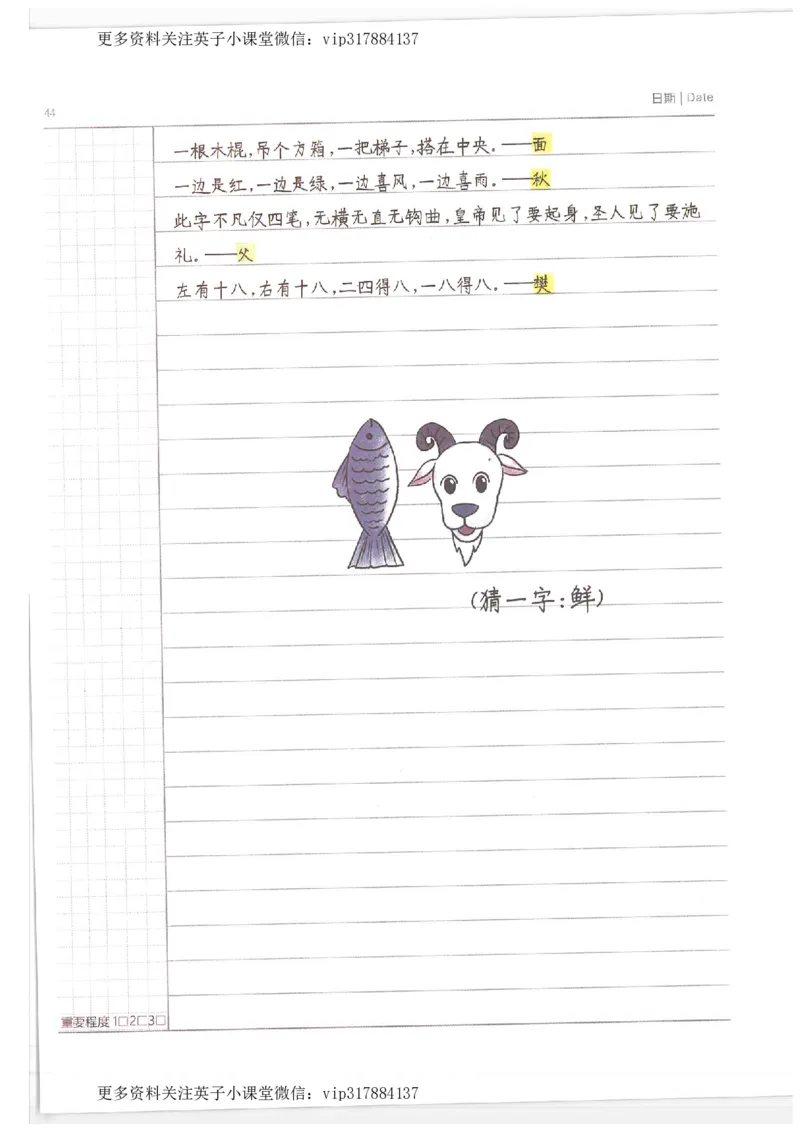 更多资料关注英子小课堂微信：vip317884137
日期 | Date
44
一根木棍,吊个方箱,一把梯子,搭在中央。——面
一边是红,一边是绿,一边喜风,一边喜雨。——秋
此字不凡仅四笔,无横无直无钩曲,皇帝见了要起身,圣人见了要施
礼。——父
左有十八,右有十八,二四得八,一八得八。——樊
(猜一字:鲜)
重要程度 1□2□3□
更多资料关注英子小课堂微信：vip317884137